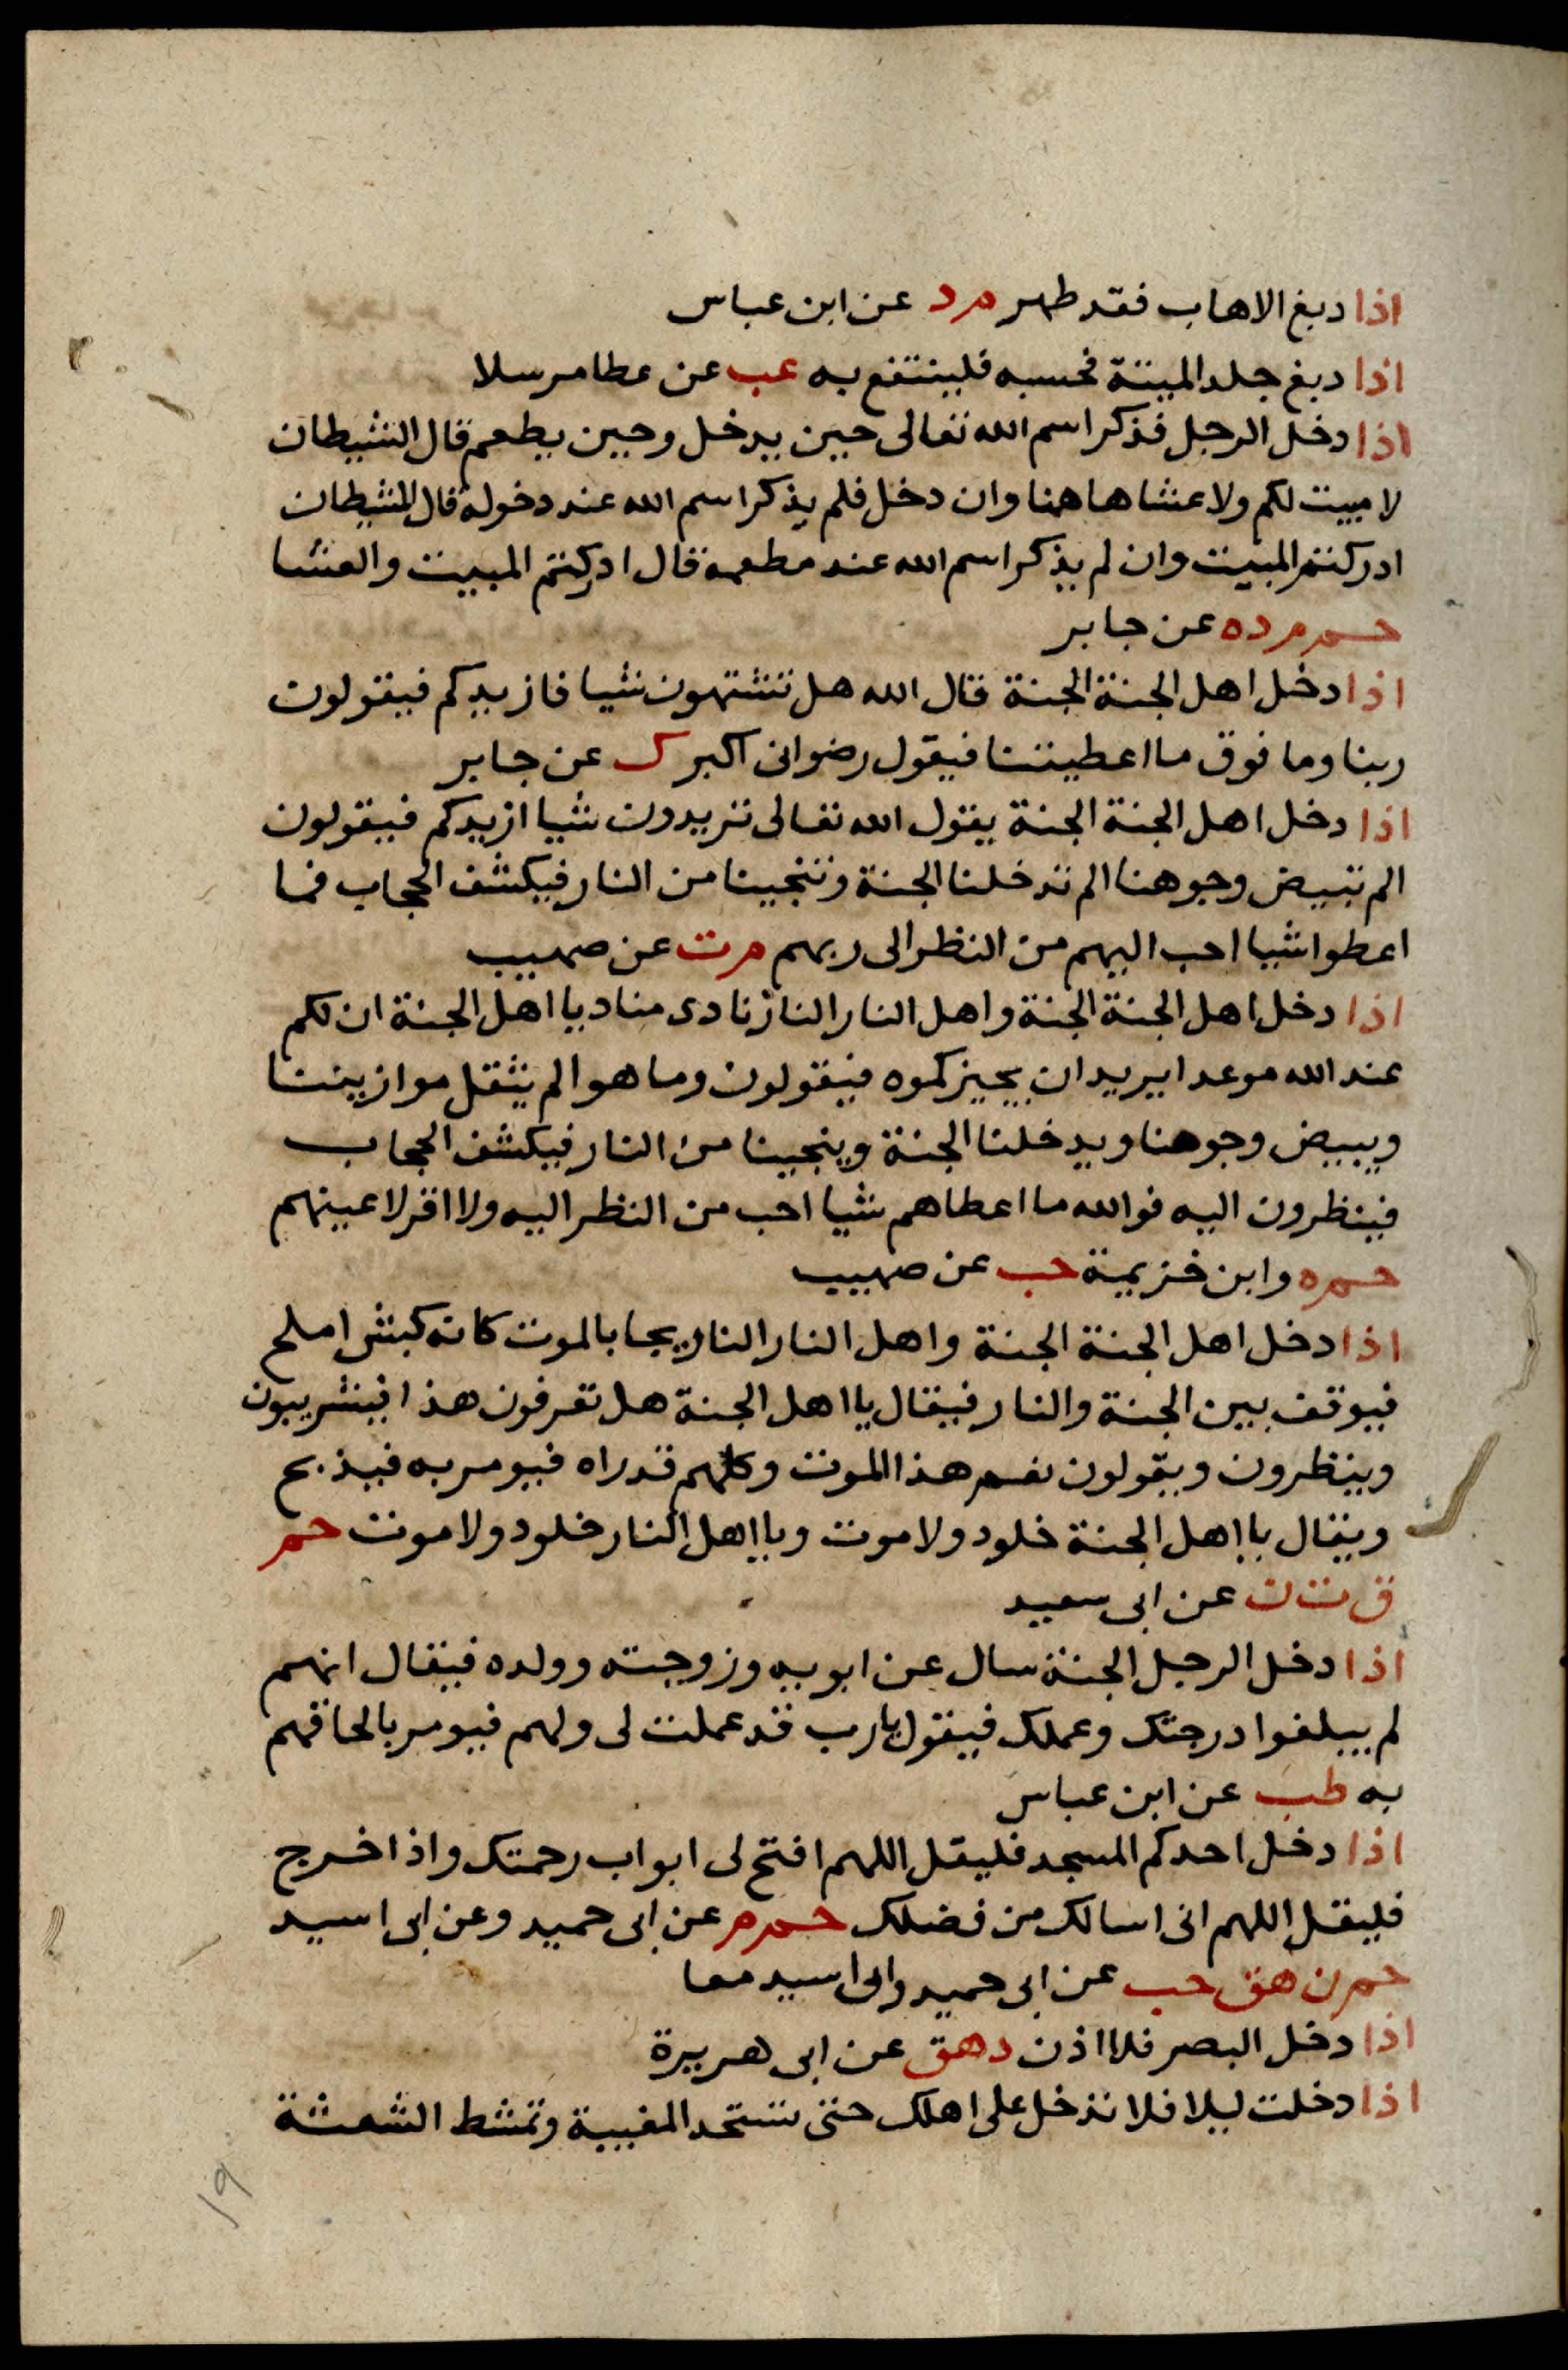 اذا دبغ الاهاب فقد طهر م د عن ابن عباس
اذا دبغ جلد الميتة فحسبه فلينتفع به عب عن عطا مرسلا
اذا دخل الرجل فذكر اسم الله تعالى حين يدخل وحين يطعم قال الشيطان
لا مبيت لكم ولا عشا هاهنا وان دخل فلم يذكر اسم الله عند دخوله قال الشيطان
ادركتم المبيت وان لم يذكر اسم الله عند مطعمه قال ادركتم المبيت والعشا
حم م د ه عن جابر
اذا دخل اهل الجنة الجنة قال الله هل تشتهون شيا فازيدكم فيقولون
ربنا وما فوق ما اعطيتنا فيقول رضوانى اكبر ك عن جابر
اذا دخل اهل الجنة الجنة يقول الله تعالى تريدون شيا ازيدكم فيقولون
الم تبيض وجوهنا الم تدخلنا الجنة وتنجينا من النار فيكشف الحجاب فما
اعطوا شيا احب اليهم من النظر الى ربهم م ت عن صهيب
اذا دخل اهل الجنة الجنة واهل النار النار نادى مناد يا اهل الجنة ان لكم
عند الله موعدا يريد ان يجيزكموه فيقولون وما هو الم يثقل موازيننا
ويبيض وجوهنا ويدخلنا الجنة وينجينا من النار فيكشف الحجاب
فينظرون اليه فوالله ما اعطاهم شيا احب من النظر اليه ولا اقر لاعينهم
حم ه وابن خزيمة حب عن صهيب
اذا دخل اهل الجنة الجنة واهل النار النار يجا بالموت كانه كبش املح
فيوقف بين الجنة والنار فيقال يا اهل الجنة هل تعرفون هذا فيشريبون
وينظرون ويقولون نعم هذا الموت وكلهم قد راه فيومر به فيذبح
ويقال يا اهل الجنة خلود ولا موت ويا اهل النار خلود ولا موت حم
ق ت ن عن ابى سعيد
اذا دخل الرجل الجنة سال عن ابويه وزوجته وولده فيقال انهم
لم يبلغوا درجتك وعملك فيقول يا رب قد عملت لى ولهم فيومر بالحاقهم
به طب عن ابن عباس
اذا دخل احدكم المسجد فليقل اللهم افتح لى ابواب رحمتك واذا خرج
فليقل اللهم انى اسالك من فضلك حم م عن ابى حميد وعن ابى اسيد
حم ن هق حب عن ابى حميد وابى اسيد معا
اذا دخل البصر فلا اذن د هق عن ابى هريرة
اذا دخلت ليلا فلا تدخل على اهلك حتى تستحد المغيبة وتمتشط الشعثة
١٩